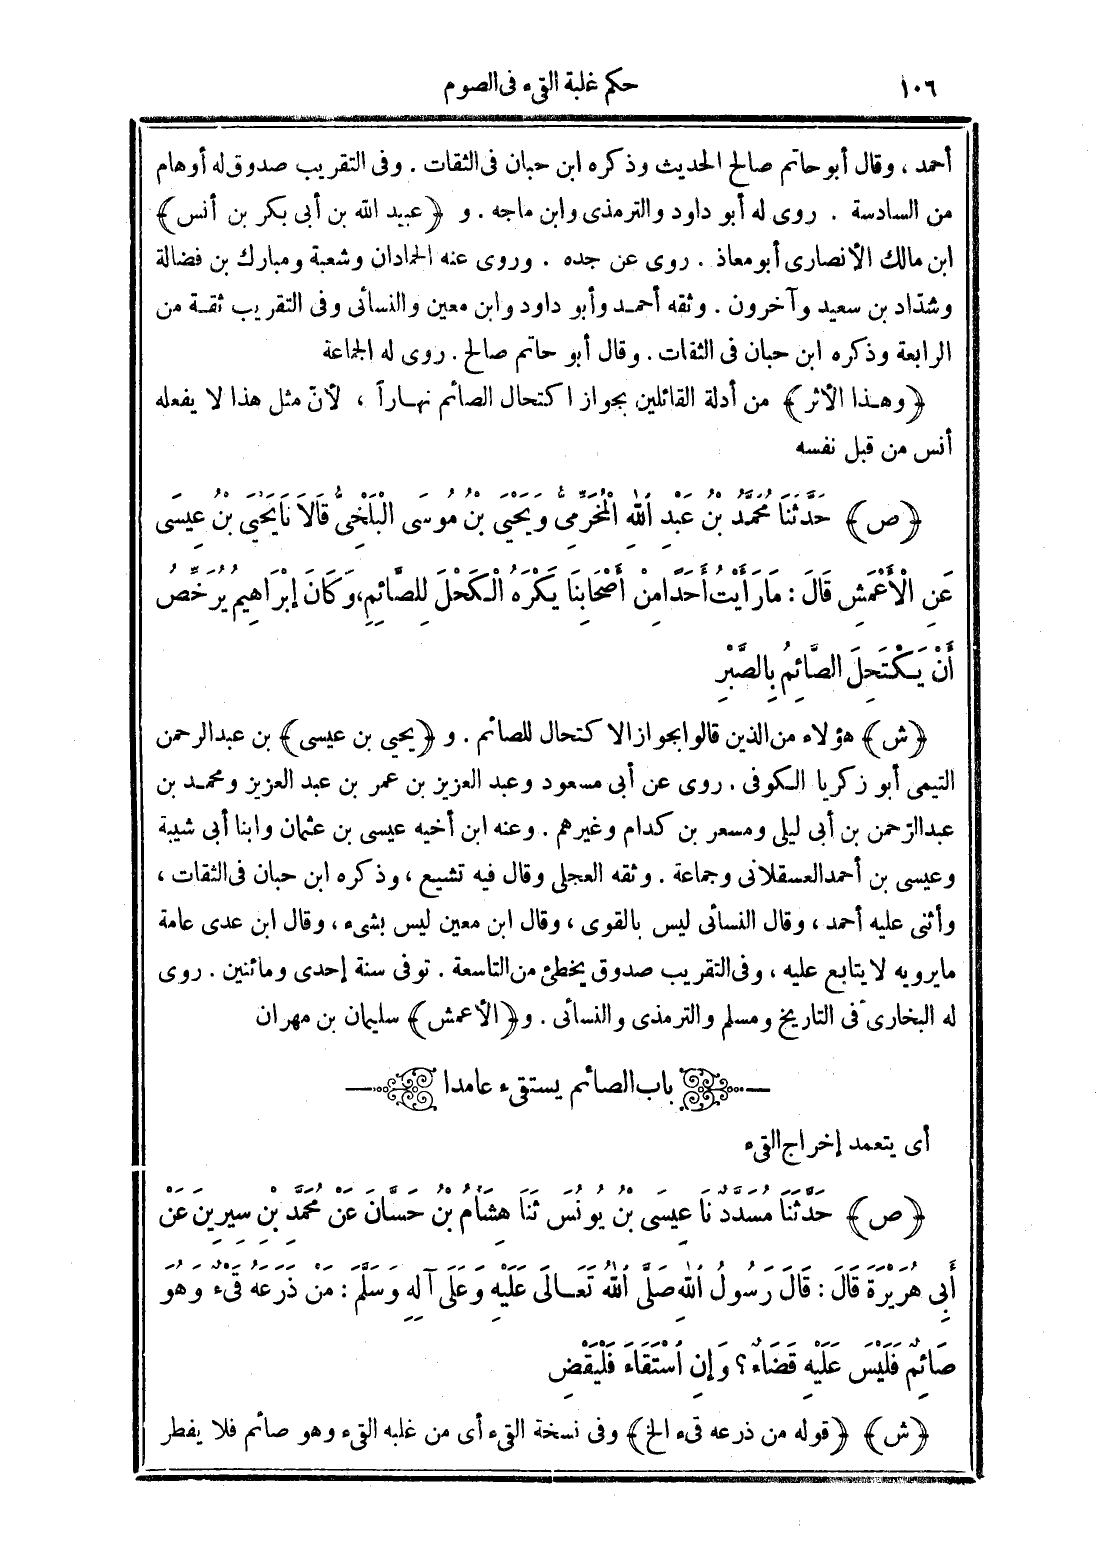 ١٠٦ حكم غلبة القىء فى الصوم
أحمد ، وقال أبو حاتم صالح الحديث وذكره ابن حبان فى الثقات . وفى التقريب صدوق له أوهام
من السادسة . روى له أبو داود والترمذى وابن ماجه . و ﴿عبيد الله بن أبى بكر بن أنس﴾
ابن مالك الأنصارى أبو معاذ . روى عن جده . وروى عنه الحمادان وشعبة ومبارك بن فضالة
وشداد بن سعيد وآخرون . وثقه أحمد وأبو داود وابن معين والنسائى وفى التقريب ثقة من
الرابعة وذكره ابن حبان فى الثقات . وقال أبو حاتم صالح . روى له الجماعة
﴿وهذا الأثر﴾ من أدلة القائلين بجواز اكتحال الصائم نهاراً ، لأنّ مثل هذا لا يفعله
أنس من قبل نفسه
﴿ص﴾ حَدَّثَنَا مُحَمَّدُ بْنُ عَبْدِ اللهِ الْمُخَرِّمِىُّ وَيَحْيَى بْنُ مُوسَى الْبَلْخِىُّ قَالَا نَا يَحْيَى بْنُ عِيسَى
عَنِ الْأَعْمَشِ قَالَ : مَا رَأَيْتُ أَحَدًا مِنْ أَصْحَابِنَا يَكْرَهُ الْكُحْلَ لِلصَّائِمِ، وَكَانَ إِبْرَاهِيمُ يُرَخِّصُ
أَنْ يَكْتَحِلَ الصَّائِمُ بِالصَّبْرِ
﴿ش﴾ هؤلاء من الذين قالوا بجواز الاكتحال للصائم . و ﴿يحيى بن عيسى﴾ بن عبد الرحمن
التيمى أبو زكريا الكوفى . روى عن أبى مسعود وعبد العزيز بن عمر بن عبد العزيز ومحمد بن
عبد الرحمن بن أبى ليلى ومسعر بن كدام وغيرهم . وعنه ابن أخيه عيسى بن عثمان وابنا أبى شيبة
وعيسى بن أحمد العسقلانى وجماعة . وثقه العجلى وقال فيه تشيع ، وذكره ابن حبان فى الثقات ،
وأثنى عليه أحمد ، وقال النسائى ليس بالقوى ، وقال ابن معين ليس بشىء ، وقال ابن عدى عامة
ما يرويه لا يتابع عليه ، وفى التقريب صدوق يخطئ من التاسعة . توفى سنة إحدى ومائتين . روى
له البخارى فى التاريخ ومسلم والترمذى والنسائى . و﴿الأعمش﴾ سليمان بن مهران
باب الصائم يستقىء عامدا
أى يتعمد إخراج القىء
﴿ص﴾ حَدَّثَنَا مُسَدَّدٌ نَا عِيسَى بْنُ يُونُسَ ثَنَا هِشَامُ بْنُ حَسَّانَ عَنْ مُحَمَّدِ بْنِ سِيرِينَ عَنْ
أَبِى هُرَيْرَةَ قَالَ : قَالَ رَسُولُ اللهِ صَلَّى اللهُ تَعَالَى عَلَيْهِ وَعَلَى آلِهِ وَسَلَّمَ : مَنْ ذَرَعَهُ قَىْءٌ وَهُوَ
صَائِمٌ فَلَيْسَ عَلَيْهِ قَضَاءٌ ؟ وَإِنِ اسْتَقَاءَ فَلْيَقْضِ
﴿ش﴾ ﴿قوله من ذرعه قىء الخ﴾ وفى نسخة القىء أى من غلبه القىء وهو صائم فلا يفطر